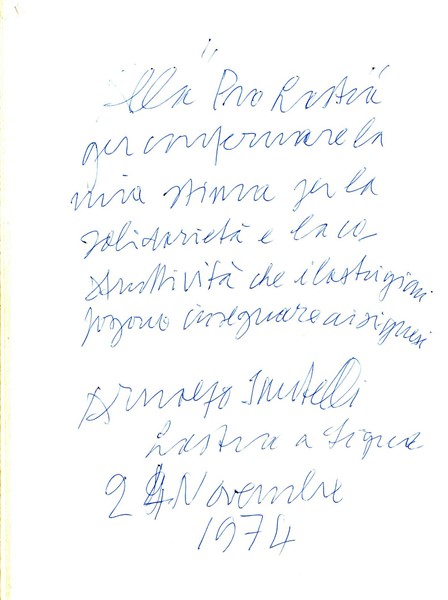 Alla "Pro Lastra"
per confermare la
mia stima per la
solidarietà e la co_
struttività che i lastrigiani
possono insegnare ai signesi
Lastra a Signa
24 Novembre
1974